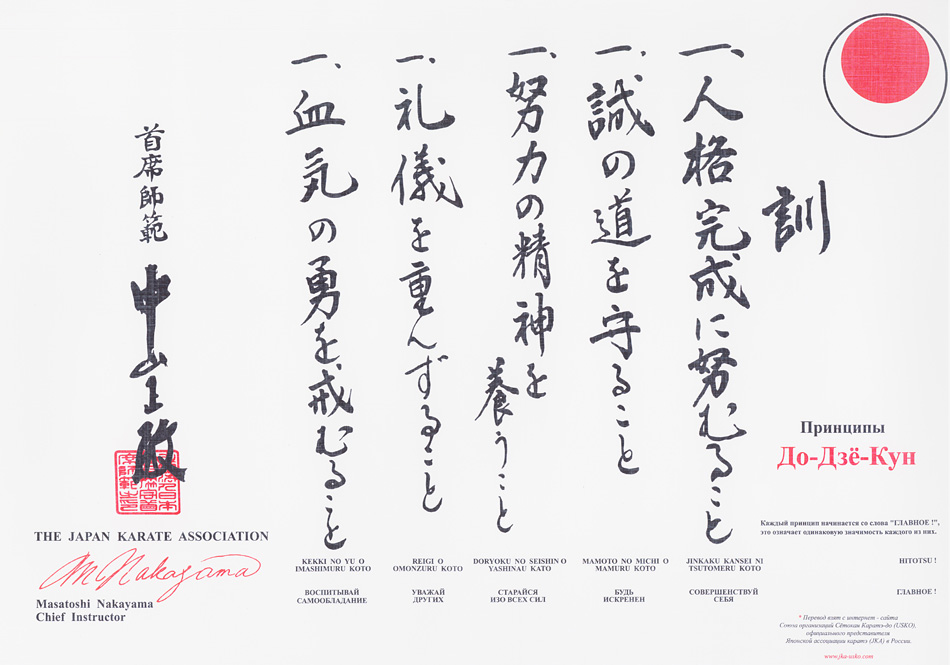 訓
一、人格完成に努むること
一、誠の道を守ること
一、努力の精神を養うこと
一、礼儀を重んずること
一、血気の勇を戒むること
首席師範
中山正敏
Принципы
До-Дзё-Кун
Каждый принцип начинается со слова "ГЛАВНОЕ !",
это означает одинаковую значимость каждого из них.
THE JAPAN KARATE ASSOCIATION
M Nakayama
Masatoshi Nakayama
Chief Instructor
KEKKI NO YU O
IMASHIMURU KOTO
REIGI O
OMONZURU KOTO
DORYOKU NO SEISHIN O
YASHINAU KATO
MAMOTO NO MICHI O
MAMURU KOTO
JINKAKU KANSEI NI
TSUTOMERU KOTO
HITOTSU !
ВОСПИТЫВАЙ
САМООБЛАДАНИЕ
УВАЖАЙ
ДРУГИХ
СТАРАЙСЯ
ИЗО ВСЕХ СИЛ
БУДЬ
ИСКРЕНЕН
СОВЕРШЕНСТВУЙ
СЕБЯ
ГЛАВНОЕ !
* Перевод взят с интернет - сайта
Союза организаций Сётокан Каратэ-до (USKO),
официального представителя
Японской ассоциации каратэ (JKA) в России.
www.jka-usko.com